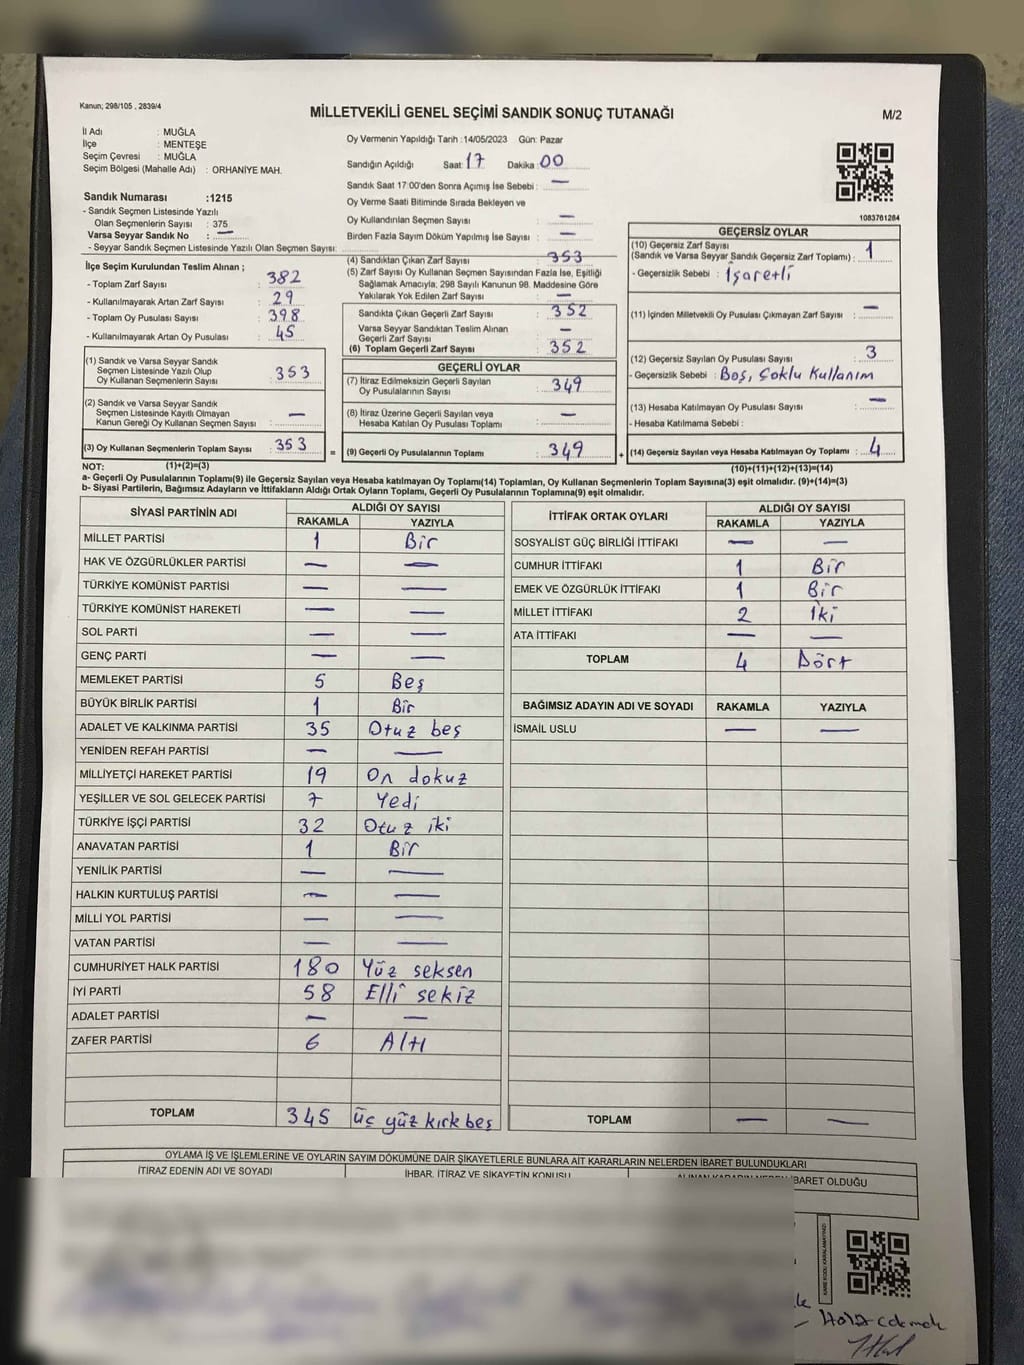 Kanun; 298/105 , 2839/4
MİLLETVEKİLİ GENEL SEÇİMİ SANDIK SONUÇ TUTANAĞI
M/2
İl Adı : MUĞLA
İlçe : MENTEŞE
Seçim Çevresi : MUĞLA
Seçim Bölgesi (Mahalle Adı) : ORHANİYE MAH.
Sandık Numarası :1215
- Sandık Seçmen Listesinde Yazılı
Olan Seçmenlerin Sayısı : 375
Varsa Seyyar Sandık No : —
- Seyyar Sandık Seçmen Listesinde Yazılı Olan Seçmen Sayısı:
Oy Vermenin Yapıldığı Tarih :14/05/2023 Gün: Pazar
Sandığın Açıldığı Saat: 17 Dakika: 00
Sandık Saat 17:00'den Sonra Açımış İse Sebebi : —
Oy Verme Saati Bitiminde Sırada Bekleyen ve
Oy Kullandırılan Seçmen Sayısı : —
Birden Fazla Sayım Döküm Yapılmış İse Sayısı : —
1083761284
İlçe Seçim Kurulundan Teslim Alınan ;
- Toplam Zarf Sayısı : 382
- Kullanılmayarak Artan Zarf Sayısı : 29
- Toplam Oy Pusulası Sayısı : 398
- Kullanılmayarak Artan Oy Pusulası : 45
(1) Sandık ve Varsa Seyyar Sandık
Seçmen Listesinde Yazılı Olup
Oy Kullanan Seçmenlerin Sayısı : 353
(2) Sandık ve Varsa Seyyar Sandık
Seçmen Listesinde Kayıtlı Olmayan
Kanun Gereği Oy Kullanan Seçmen Sayısı : —
(3) Oy Kullanan Seçmenlerin Toplam Sayısı : 353
(1)+(2)=(3)
(4) Sandıktan Çıkan Zarf Sayısı : 353
(5) Zarf Sayısı Oy Kullanan Seçmen Sayısından Fazla İse, Eşitliği
Sağlamak Amacıyla; 298 Sayılı Kanunun 98. Maddesine Göre
Yakılarak Yok Edilen Zarf Sayısı : —
Sandıkta Çıkan Geçerli Zarf Sayısı : 352
Varsa Seyyar Sandıktan Teslim Alınan
Geçerli Zarf Sayısı : —
(6) Toplam Geçerli Zarf Sayısı : 352
GEÇERLİ OYLAR
(7) İtiraz Edilmeksizin Geçerli Sayılan
Oy Pusulalarının Sayısı : 349
(8) İtiraz Üzerine Geçerli Sayılan veya
Hesaba Katılan Oy Pusulası Toplamı : —
= (9) Geçerli Oy Pusulalarının Toplamı : 349
GEÇERSİZ OYLAR
(10) Geçersiz Zarf Sayısı
(Sandık ve Varsa Seyyar Sandık Geçersiz Zarf Toplamı) : 1
- Geçersizlik Sebebi : İşaretli
(11) İçinden Milletvekili Oy Pusulası Çıkmayan Zarf Sayısı : —
(12) Geçersiz Sayılan Oy Pusulası Sayısı : 3
- Geçersizlik Sebebi : Boş, Çoklu Kullanım
(13) Hesaba Katılmayan Oy Pusulası Sayısı : —
- Hesaba Katılmama Sebebi :
+ (14) Geçersiz Sayılan veya Hesaba Katılmayan Oy Toplamı : 4
(10)+(11)+(12)+(13)=(14)
NOT:
a- Geçerli Oy Pusulalarının Toplamı(9) ile Geçersiz Sayılan veya Hesaba katılmayan Oy Toplamı(14) Toplamları, Oy Kullanan Seçmenlerin Toplam Sayısına(3) eşit olmalıdır. (9)+(14)=(3)
b- Siyasi Partilerin, Bağımsız Adayların ve İttifakların Aldığı Ortak Oyların Toplamı, Geçerli Oy Pusulalarının Toplamına(9) eşit olmalıdır.
SİYASİ PARTİNİN ADI ALDIĞI OY SAYISI
RAKAMLA YAZIYLA
MİLLET PARTİSİ 1 Bir
HAK VE ÖZGÜRLÜKLER PARTİSİ — —
TÜRKİYE KOMÜNİST PARTİSİ — —
TÜRKİYE KOMÜNİST HAREKETİ — —
SOL PARTİ — —
GENÇ PARTİ — —
MEMLEKET PARTİSİ 5 Beş
BÜYÜK BİRLİK PARTİSİ 1 Bir
ADALET VE KALKINMA PARTİSİ 35 Otuz beş
YENİDEN REFAH PARTİSİ — —
MİLLİYETÇİ HAREKET PARTİSİ 19 On dokuz
YEŞİLLER VE SOL GELECEK PARTİSİ 7 Yedi
TÜRKİYE İŞÇİ PARTİSİ 32 Otuz iki
ANAVATAN PARTİSİ 1 Bir
YENİLİK PARTİSİ — —
HALKIN KURTULUŞ PARTİSİ — —
MİLLİ YOL PARTİSİ — —
VATAN PARTİSİ — —
CUMHURİYET HALK PARTİSİ 180 Yüz seksen
İYİ PARTİ 58 Elli sekiz
ADALET PARTİSİ — —
ZAFER PARTİSİ 6 Altı
TOPLAM 345 üç yüz kırk beş
İTTİFAK ORTAK OYLARI ALDIĞI OY SAYISI
RAKAMLA YAZIYLA
SOSYALİST GÜÇ BİRLİĞİ İTTİFAKI — —
CUMHUR İTTİFAKI 1 Bir
EMEK VE ÖZGÜRLÜK İTTİFAKI 1 Bir
MİLLET İTTİFAKI 2 İki
ATA İTTİFAKI — —
TOPLAM 4 Dört
BAĞIMSIZ ADAYIN ADI VE SOYADI RAKAMLA YAZIYLA
İSMAİL USLU — —
TOPLAM — —
OYLAMA İŞ VE İŞLEMLERİNE VE OYLARIN SAYIM DÖKÜMÜNE DAİR ŞİKAYETLERLE BUNLARA AİT KARARLARIN NELERDEN İBARET BULUNDUKLARI
İTİRAZ EDENİN ADI VE SOYADI
İHBAR, İTİRAZ VE ŞİKAYETİN KONUSU
İBARET OLDUĞU
KARE KODU KARALAMAYINIZ!